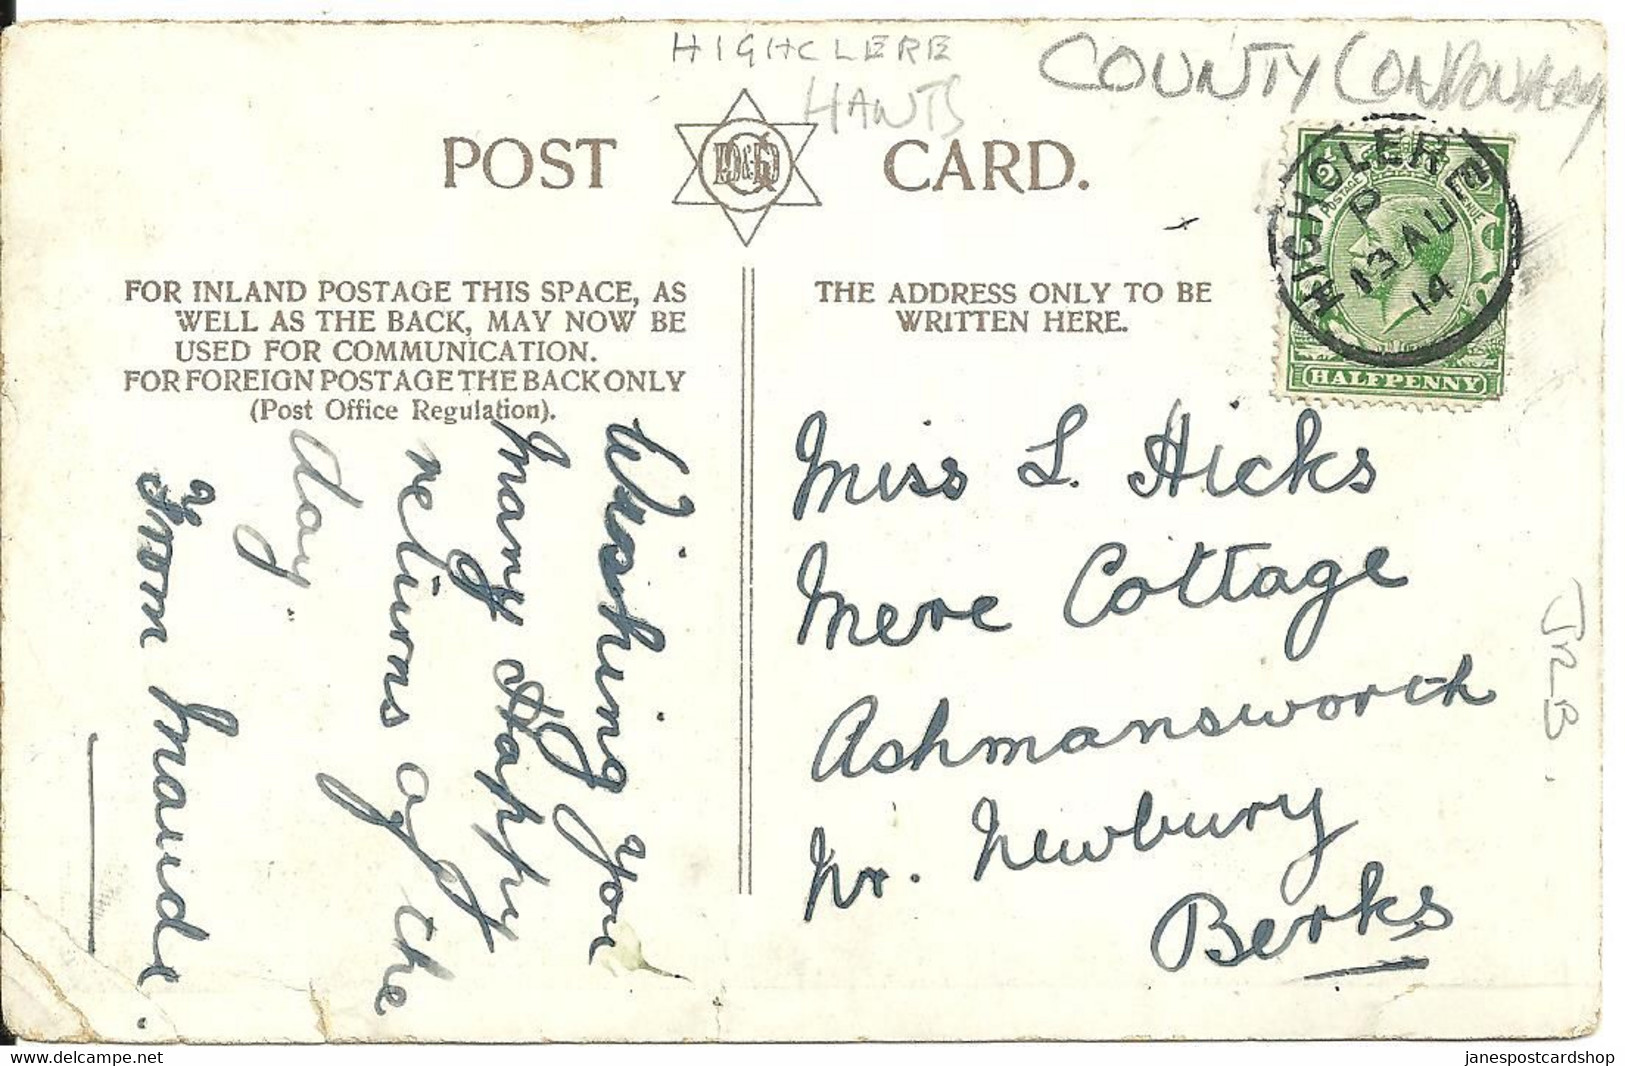 HIGHCLERE
HANTS
COUNTY
POST CARD.
FOR INLAND POSTAGE THIS SPACE, AS
WELL AS THE BACK, MAY NOW BE
USED FOR COMMUNICATION.
FOR FOREIGN POSTAGE THE BACK ONLY
(Post Office Regulation).
THE ADDRESS ONLY TO BE
WRITTEN HERE.
HIGHCLERE
P
13 AU
14
POSTAGE REVENUE
HALFPENNY
Wishing you
many Happy
returns of the
day.
From Maude.
Miss L. Hicks
Mere Cottage
Ashmansworth
Nr. Newbury
Berks
delcampe.net
janespostcardshop